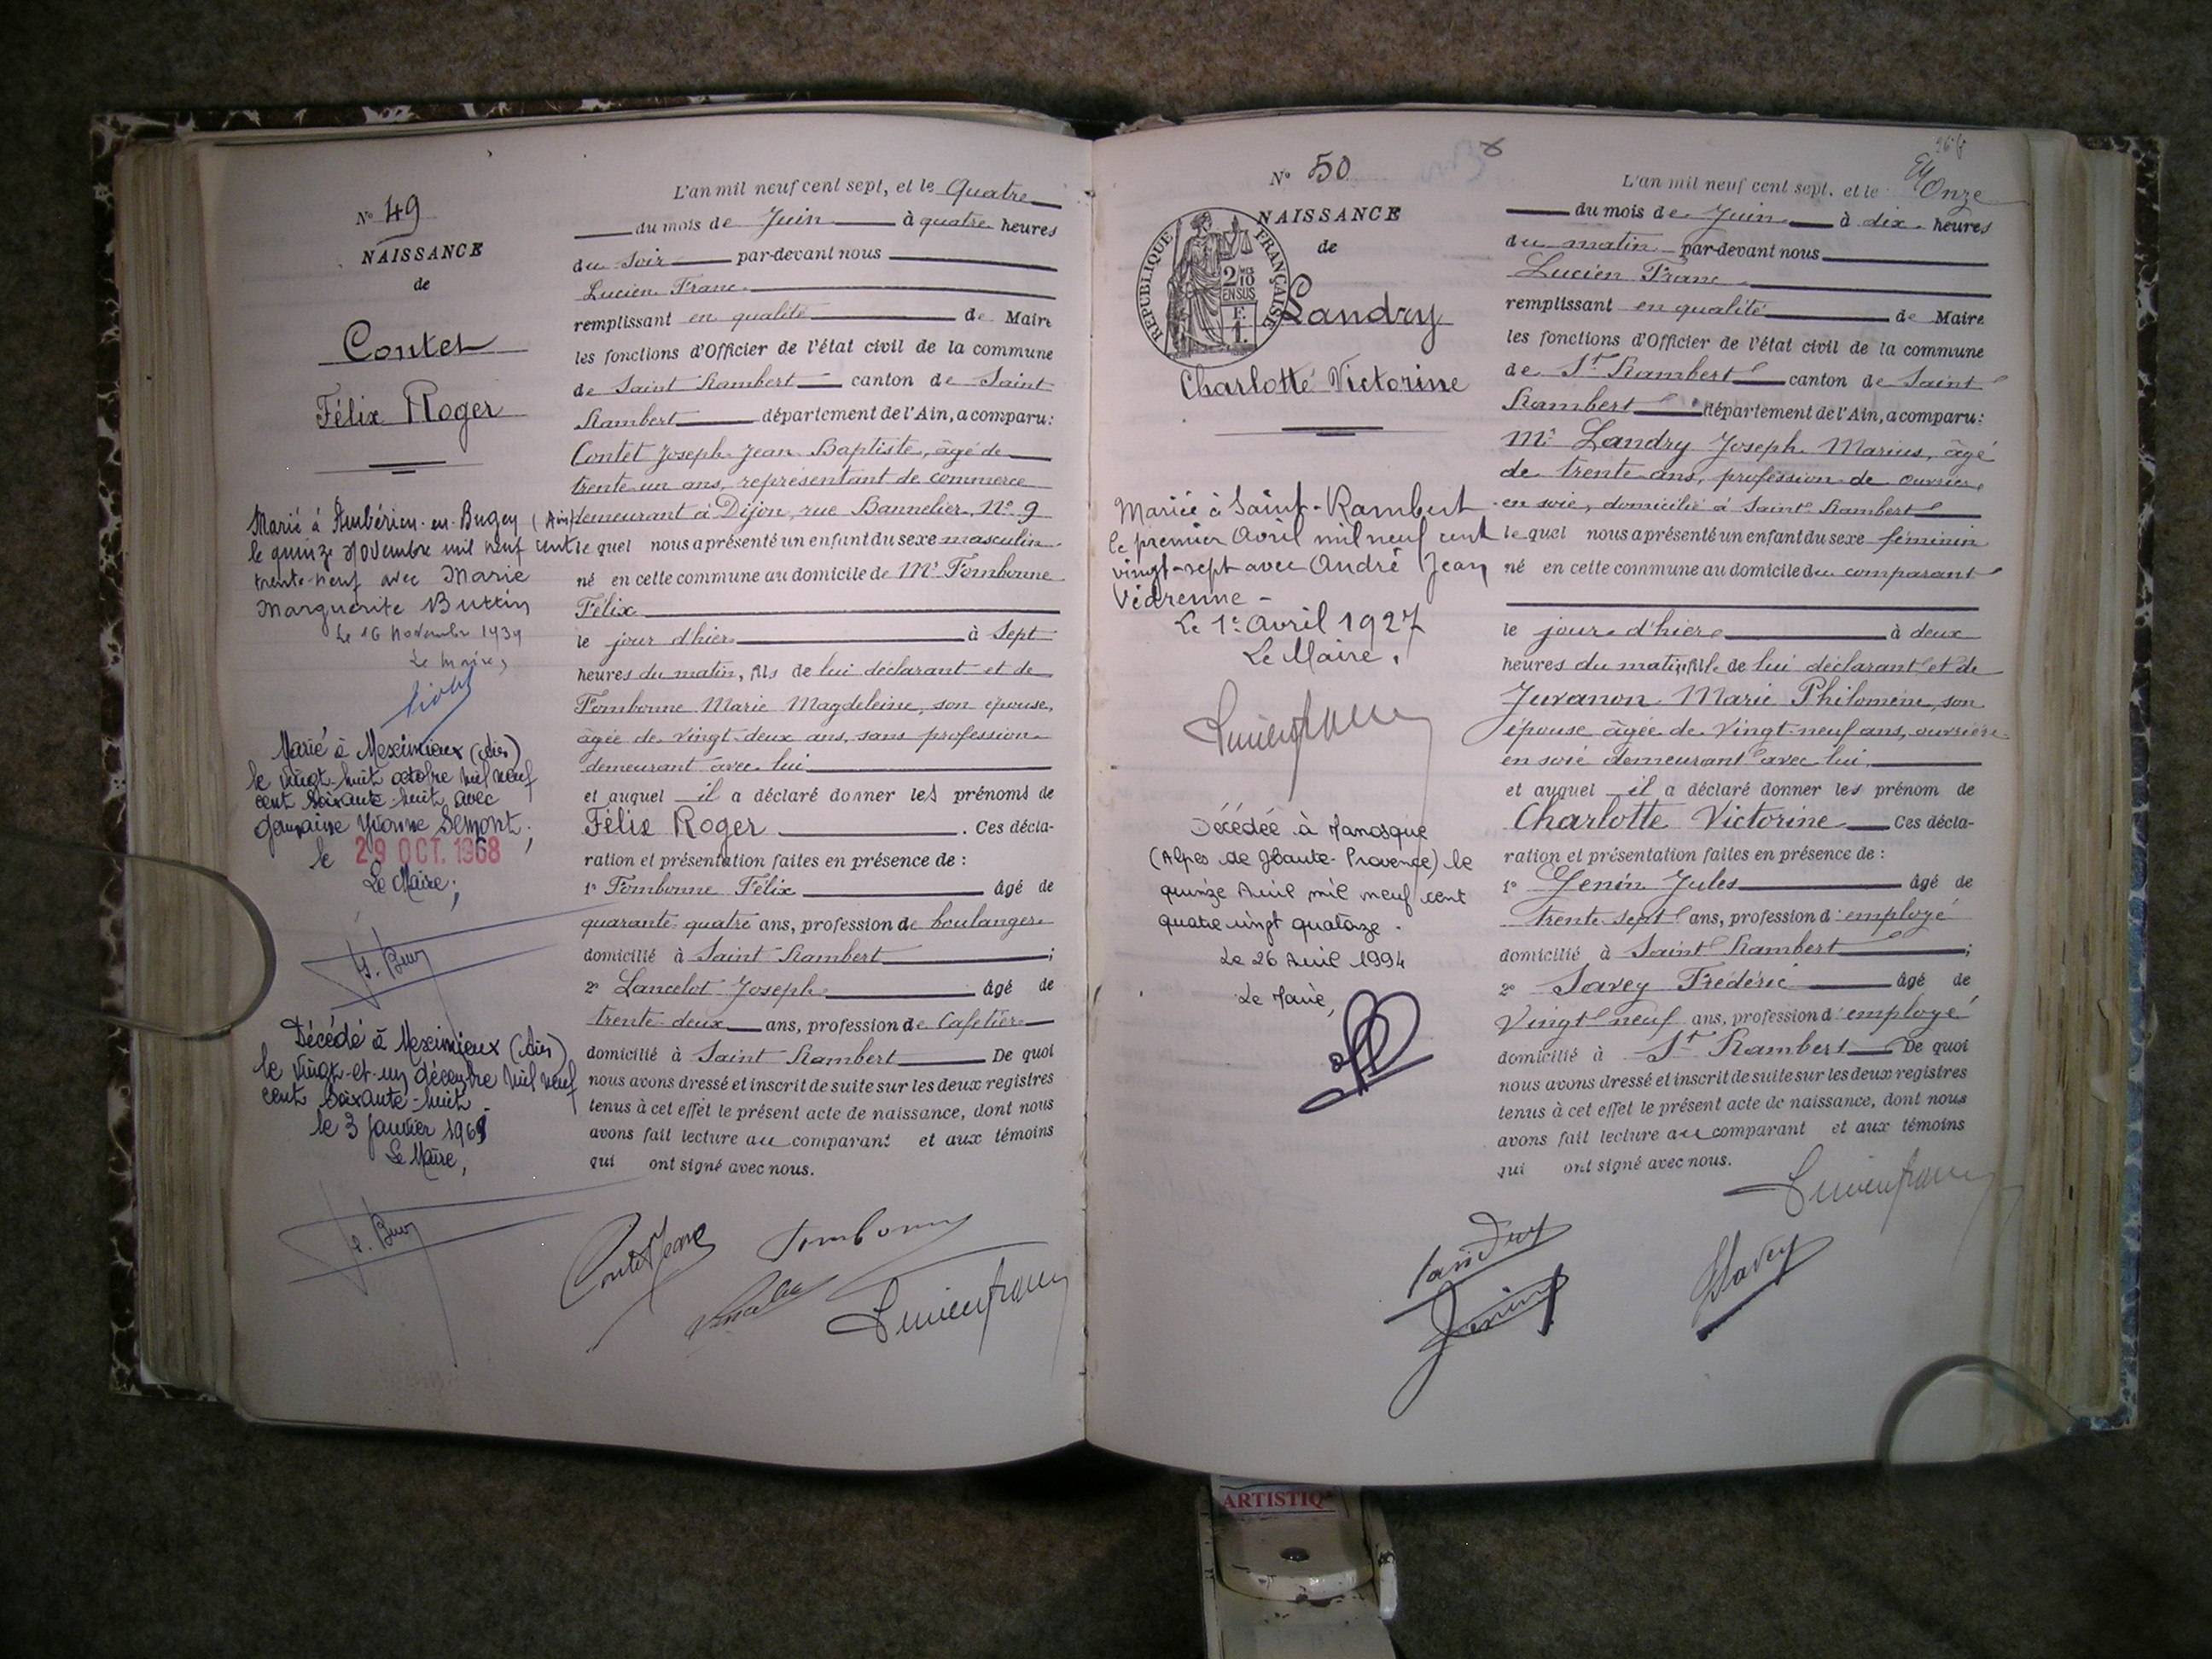 N° 49
NAISSANCE
de
Contet
Félix Roger
Marié à Ambérieu-en-Bugey (Ain)
le quinze novembre mil neuf cent
trente-neuf avec Marie
Marguerite Buttin
Le 16 Novembre 1939
Le Maire,
Marié à Meximieux (Ain)
le vingt-huit octobre mil neuf
cent soixante-huit avec
Germaine Yvonne Semont;
le 29 OCT. 1968
Le Maire;
Décédé à Meximieux (Ain)
le vingt-et-un décembre mil neuf
cent soixante-huit.
le 3 janvier 1969
Le Maire,
L'an mil neuf cent sept, et le Quatre
du mois de Juin à quatre heures
du soir par-devant nous
Lucien Franc
remplissant en qualité de Maire
les fonctions d'Officier de l'état civil de la commune
de Saint Rambert canton de Saint
Rambert département de l'Ain, a comparu:
Contet Joseph Jean Baptiste, âgé de
trente un ans, représentant de commerce
demeurant à Dijon, rue Bannelier, N° 9
lequel nous a présenté un enfant du sexe masculin
né en cette commune au domicile de Mr Fombonne
Félix
le jour d'hier à sept
heures du matin, fils de lui déclarant et de
Fombonne Marie Magdeleine, son épouse,
âgée de vingt-deux ans, sans profession
demeurant avec lui
et auquel il a déclaré donner les prénoms de
Félix Roger. Ces décla-
ration et présentation faites en présence de :
1° Fombonne Félix âgé de
quarante-quatre ans, profession de boulanger
domicilié à Saint Rambert ;
2° Lancelot Joseph âgé de
trente-deux ans, profession de Cafetier
domicilié à Saint Rambert De quoi
nous avons dressé et inscrit de suite sur les deux registres
tenus à cet effet le présent acte de naissance, dont nous
avons fait lecture au comparant et aux témoins
qui ont signé avec nous.
Fombonne
Lucien Franc
N° 50
NAISSANCE
de
RÉPUBLIQUE FRANÇAISE
2/10 EN SUS
Landry
Charlotte Victorine
Mariée à Saint-Rambert
le premier Avril mil neuf cent
vingt-sept avec André Jean
Védrenne -
Le 1er Avril 1927
Le Maire,
Lucien Franc
Décédée à Manosque
(Alpes de Haute-Provence) le
quinze Avril mil neuf cent
quatre vingt quatorze.
Le 26 Avril 1994
Le Maire,
L'an mil neuf cent sept, et le Onze
du mois de Juin à dix heures
du matin par-devant nous
Lucien Franc
remplissant en qualité de Maire
les fonctions d'Officier de l'état civil de la commune
de St Rambert canton de Saint
Rambert département de l'Ain, a comparu:
Mr Landry Joseph Marius, âgé
de trente ans, profession de ouvrier
en soie, domicilié à Saint Rambert
lequel nous a présenté un enfant du sexe féminin
né en cette commune au domicile du comparant
le jour d'hier à deux
heures du matin, fille de lui déclarant et de
Juvanon Marie Philomène, son
épouse âgée de vingt-neuf ans, ouvrière
en soie demeurant avec lui
et auquel il a déclaré donner les prénom de
Charlotte Victorine Ces décla-
ration et présentation faites en présence de :
1° Genin Jules âgé de
trente sept ans, profession d'employé
domicilié à Saint Rambert ;
2° Savey Frédéric âgé de
Vingt neuf ans, profession d'employé
domicilié à St Rambert De quoi
nous avons dressé et inscrit de suite sur les deux registres
tenus à cet effet le présent acte de naissance, dont nous
avons fait lecture au comparant et aux témoins
qui ont signé avec nous.
Lucien Franc
Landry
Savey
Genin
ARTISTIQ